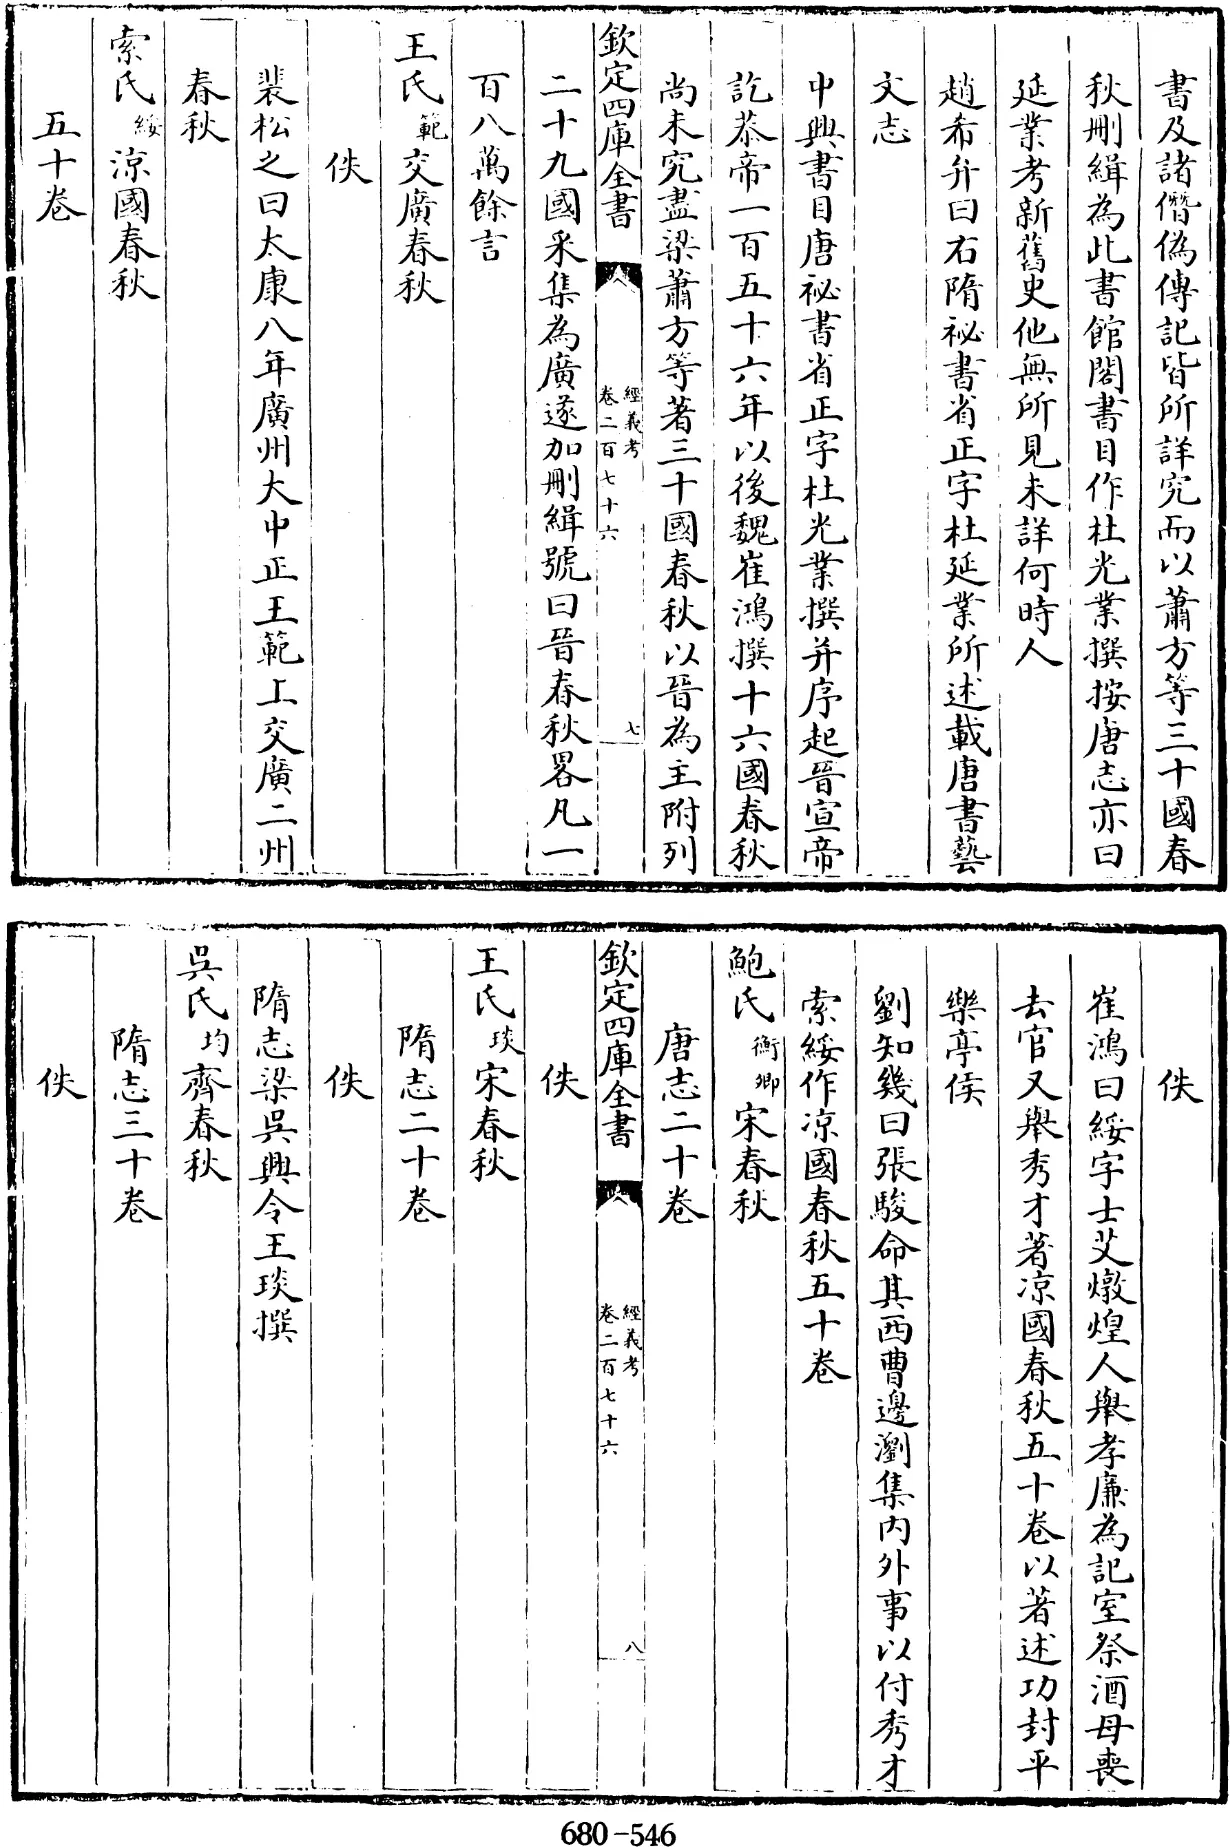 書及諸僭偽傳記皆所詳究而以蕭方等三十國春
秋刪緝為此書館閣書目作杜光業撰按唐志亦曰
延業考新舊史他無所見未詳何時人
趙希弁曰右隋祕書省正字杜延業所述載唐書藝
文志
中興書目唐祕書省正字杜光業撰并序起晉宣帝
訖恭帝一百五十六年以後魏崔鴻撰十六國春秋
尚未究盡梁蕭方等著三十國春秋以晉為主附列
欽定四庫全書
經義考
卷二百七十六
七
二十九國采集為廣遂加刪緝號曰晉春秋畧凡一
百八萬餘言
王氏範交廣春秋
佚
裴松之曰太康八年廣州大中正王範上交廣二州
春秋
索氏綏涼國春秋
五十卷
佚
崔鴻曰綏字士艾燉煌人舉孝廉為記室祭酒母喪
去官又舉秀才著凉國春秋五十卷以著述功封平
樂亭侯
劉知幾曰張駿命其西曹邊瀏集内外事以付秀才
索綏作凉國春秋五十卷
鮑氏衡卿宋春秋
唐志二十卷
欽定四庫全書
經義考
卷二百七十六
八
佚
王氏琰宋春秋
隋志二十卷
佚
隋志梁吳興令王琰撰
吳氏均齊春秋
隋志三十卷
佚
680-546